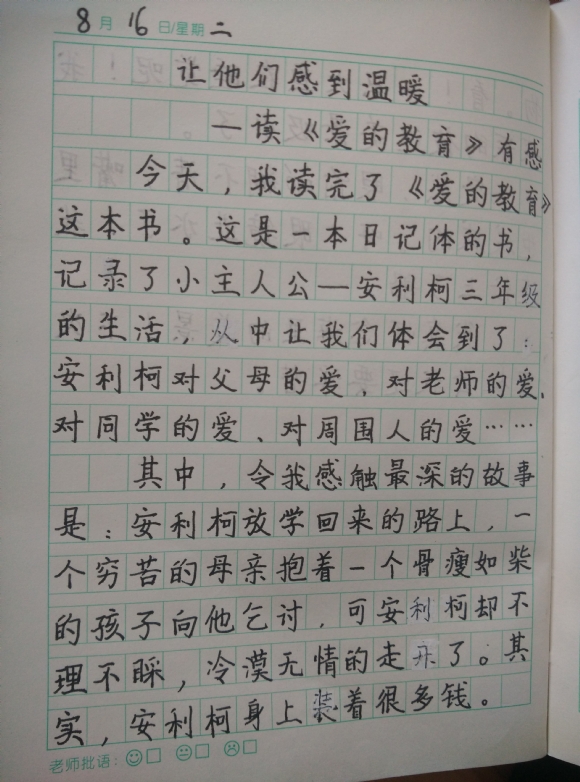 8月16日/星期二
让他们感到温暖
—读《爱的教育》有感
今天，我读完了《爱的教育》
这本书。这是一本日记体的书，
记录了小主人公—安利柯三年级
的生活，从中让我们体会到了：
安利柯对父母的爱、对老师的爱、
对同学的爱、对周围人的爱……
其中，令我感触最深的故事
是：安利柯放学回来的路上，一
个穷苦的母亲抱着一个骨瘦如柴
的孩子向他乞讨，可安利柯却不
理不睬，冷漠无情的走开了。其
实，安利柯身上装着很多钱。
老师批语：